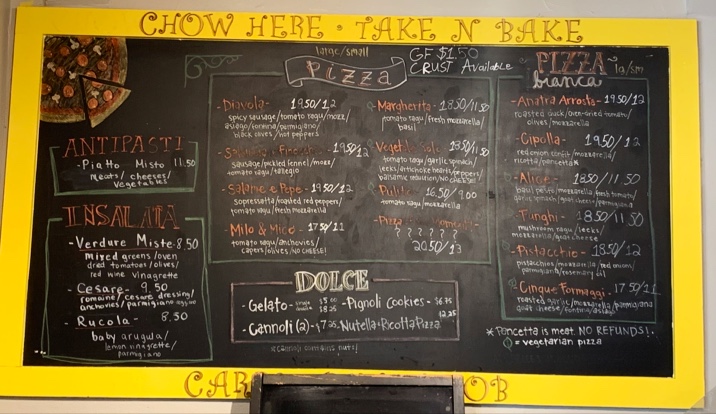 CHOW HERE · TAKE N BAKE
ANTIPASTI
-Piatto Misto 11.50
meats/ cheeses/
vegetables
INSALATA
-Verdure Miste-8.50
Mixed greens/oven
dried tomatoes/olives/
red wine vinagrette
-Cesare- 9.50
romaine/cesare dressing/
anchovies/parmigiano
-Rucola- 8.50
baby arugula/
lemon vinagrette/
parmigiano
large/small
Pizza
GF $1.50
CRUST Available
-Diavola- 19.50/12
spicy sausage/tomato ragu/mozz/
asiago/fontina/parmigiano/
black olives/hot peppers
19.50/12
sausage/pickled fennel/mozz/
tomato ragu/taleggio
-Salame e Pepe-19.50/12
sopressatta/roasted red peppers/
tomato ragu/fresh mozzarella
-Milo & Mico- 17.50/11
tomato ragu/anchovies/
capers/olives/NO CHEESE!
-Margherita-18.50/11.50
tomato ragu/fresh mozzarella/
basil
18.50/11.50
tomato ragu/garlic spinach/
leeks/artichoke hearts/peppers/
balsamic reduction/NO CHEESE!
16.50/9.00
tomato ragu/mozzarella
-Pizza
? ? ? ? ? ?
20.50/13
DOLCE
-Gelato-
-Pignoli Cookies-
-Cannoli (2)-
-Nutella+Ricotta Pizza
*cannoli contains nuts!
PIZZA
bianca
lg/sm
-Anatra Arrosta-19.50/12
roasted duck/oven-dried tomato/
olives/mozzarella
-Cipolla- 19.50/12
red onion confit/mozzarella/
ricotta/pancetta*
-Alice- 18.50/11.50
basil pesto/mozzarella/fresh tomato/
garlic spinach/goat cheese/parmigiano
-Funghi- 18.50/11.50
mushroom ragu/leeks/
mozzarella/goat cheese
-Pistacchio- 18.50/12
pistacchios/mozzarella/red onions/
parmigiano/rosemary oil
-Cinque Formaggi-17.50/11
roasted garlic/mozzarella/parmigiana
goat cheese/fontina/asiago
*Pancetta is meat. NO REFUNDS!
= vegetarian pizza
CAR
OB